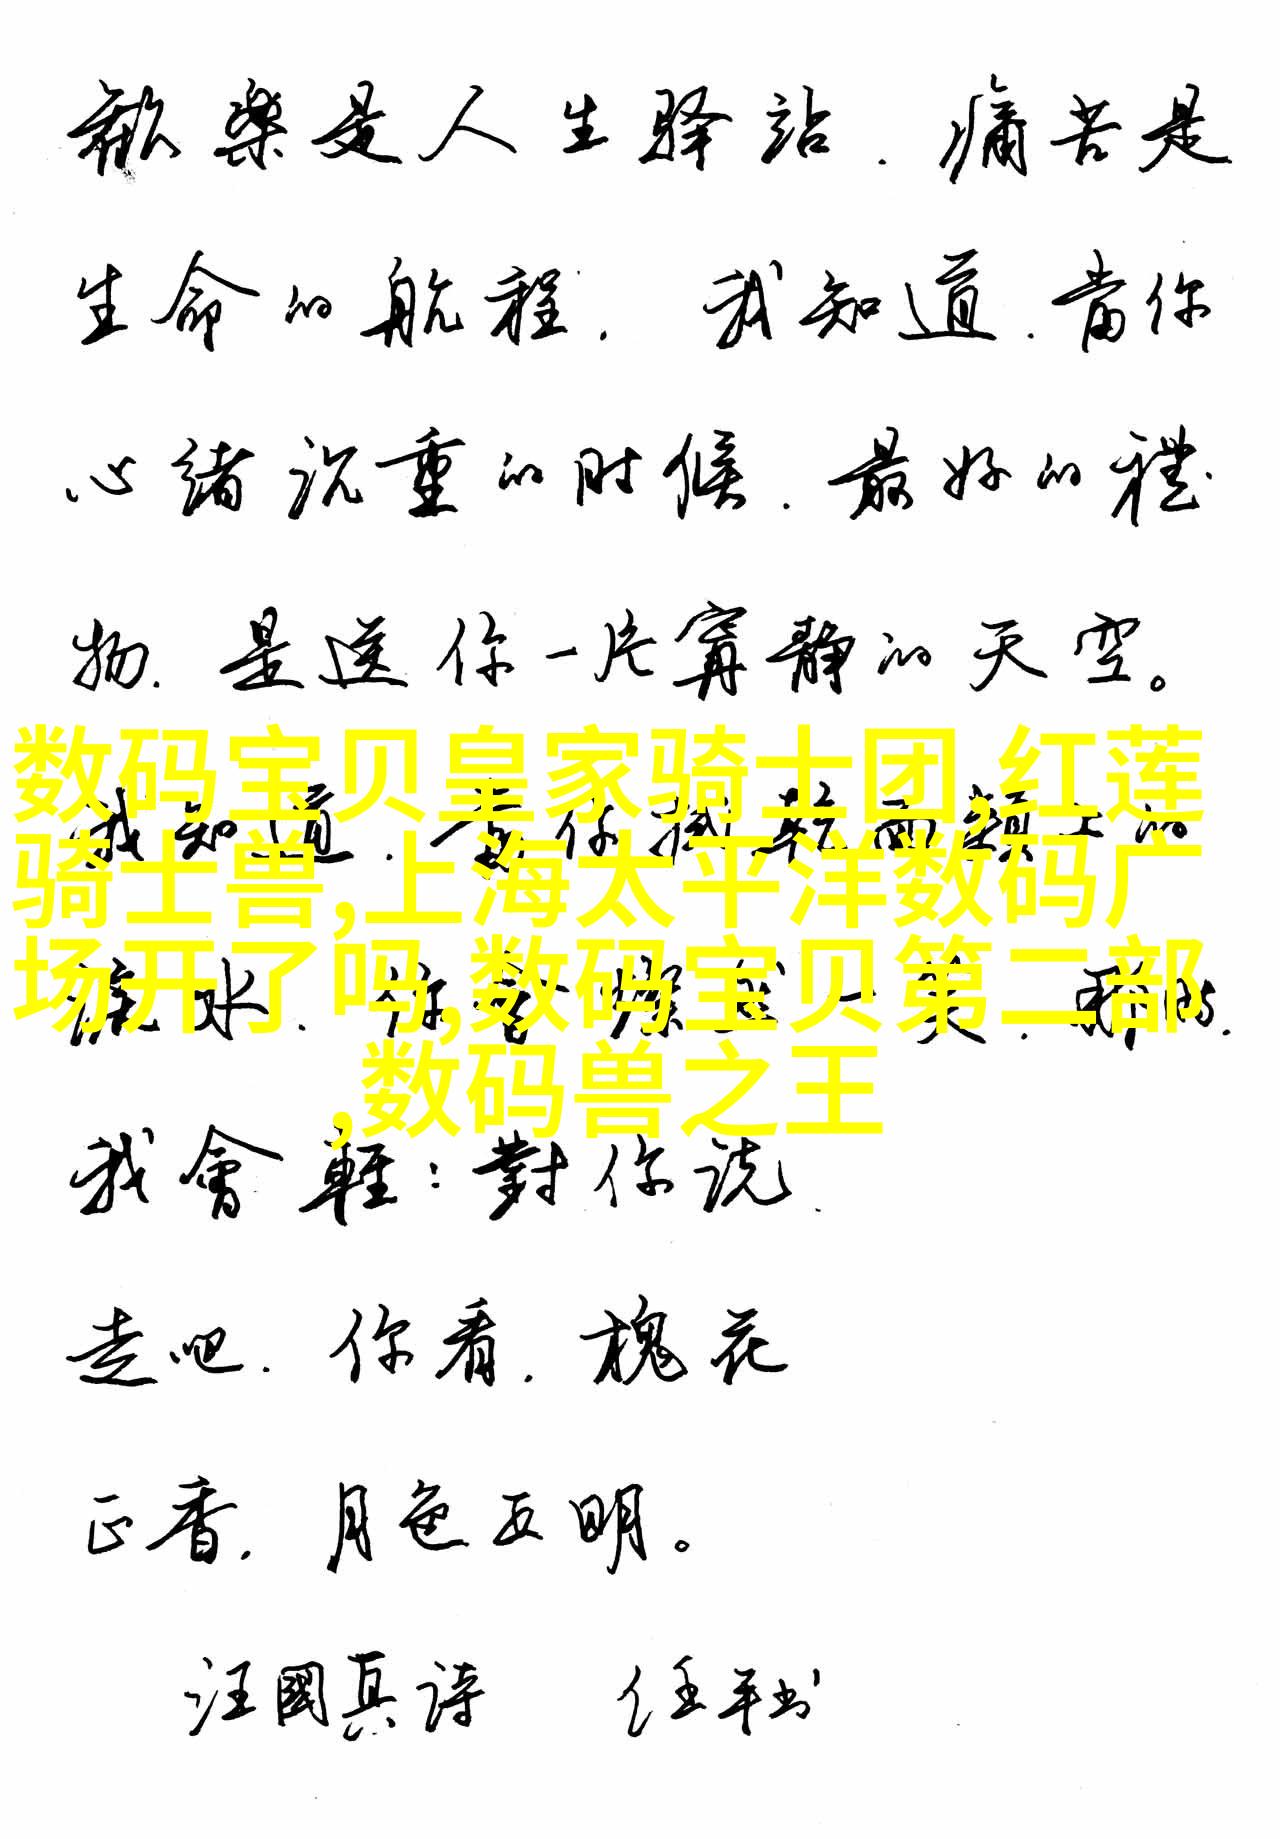 歡樂是人生驿站.痛苦是
生命的航程.我知道.當你
心緒沉重的时候.最好的禮
物.是送你一片寧静的天空。
数码宝贝皇家骑士团,红莲
我知道.當你
骑士兽,上海太平洋数码广
场开了吗,数码宝贝第二部
,数码兽之王
我會輕:對你说.
走吧.你看.槐花
正香.月色正明。
汪國真詩 任平书